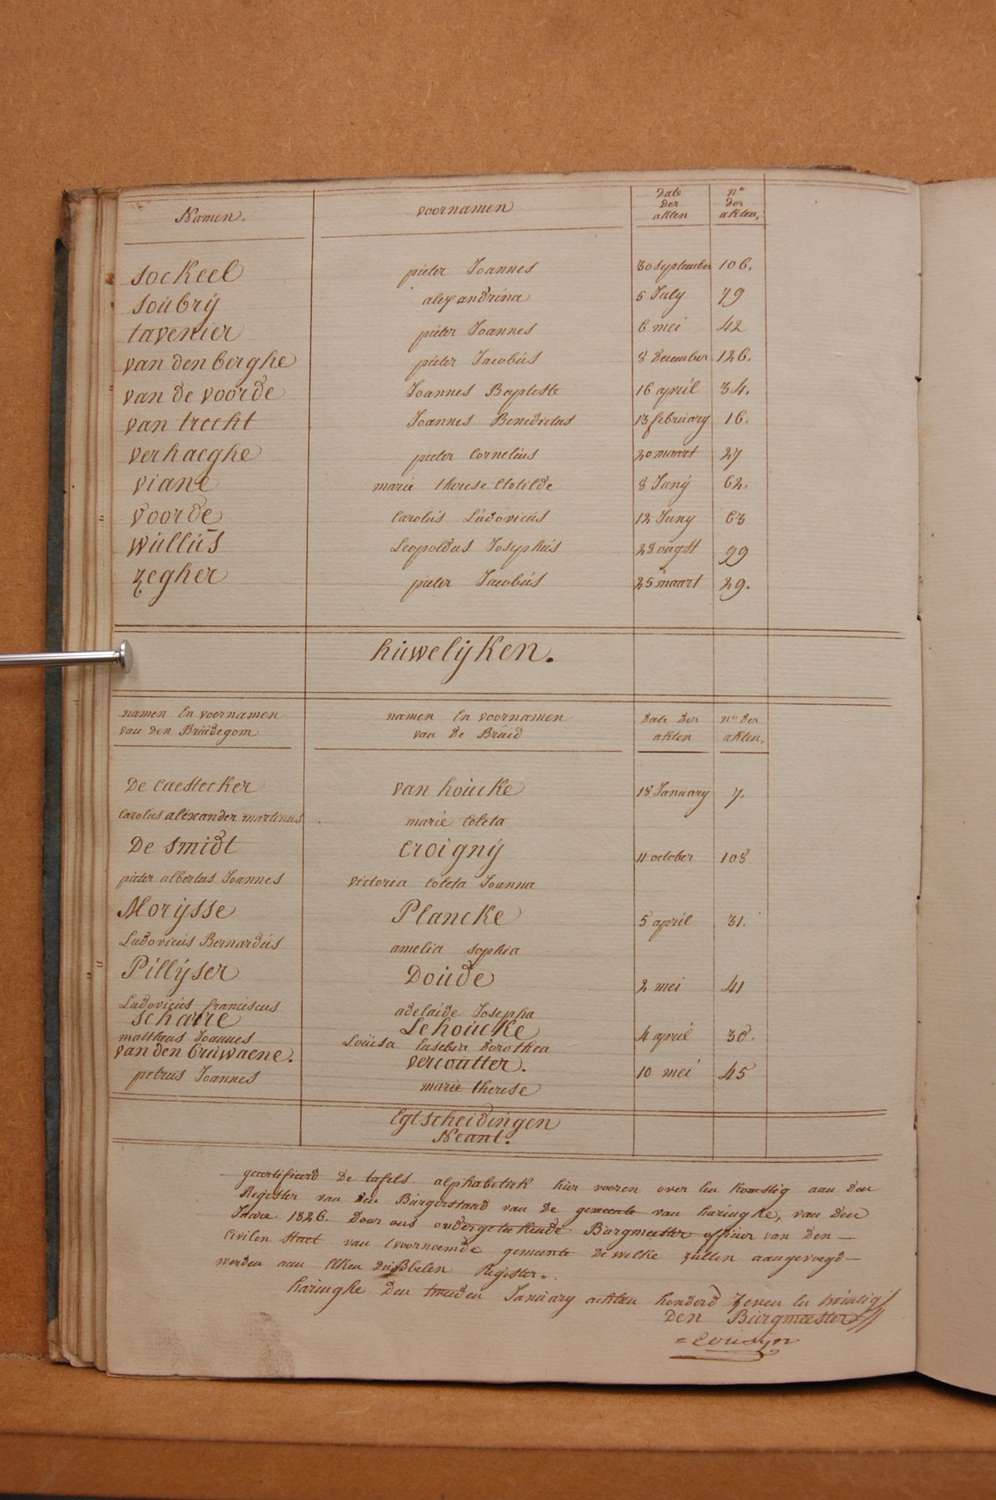 Namen. voornamen date der akten n° der akten.
Sockeel pieter Joannes 30 september 106.
Soubrÿ alexandrina 5 July 79
tavenier pieter Joannes 6 mei 42
van den berghe pieter Jacobús 8 December 126.
van de voorde Joannes Baptiste 16 april 34.
van trecht Joannes Benedictus 13 february 16.
verhaeghe pieter Cornelius 20 maart 27
viane marie therese Clotilde 8 Junÿ 62.
voorde Carolús Lúdovicús 12 Juny 63
Wúllús Leopoldus Josephús 28 augst 99
zegher pieter Jacobús 25 maart 29.
húwelijken.
namen En voornamen van den Brúidegom namen En voornamen van de Brúid Date Der akten n° Der akten.
De Caestecker van hoúcke 18 January 7.
Carolus alexander martinus marie Coleta
De Smidt Croignÿ 11 october 108
pieter albertus Joannes victoria Coleta Joanna
Morÿsse Plancke 5 april 31.
Lúdovicús Bernardús amelia sophia
Pillÿser Doúde 2 mei 41
Lúdovicús franciscus adelaide Josepha
Schaire Lehoúcke 4 april 30.
mattheus Joannes Loúisa Eusebia Dorothea
van den brúwaene. vercoutter. 10 mei 45
petrus Joannes marie therese
Egtscheidingen
Neant.
gecertifieerd De tafels alphabetiek hier vooren over Een komstig aan den
Register van den Búrgerstand van de gemeente van haringhe, van den
Jaare 1826. Door ons ondergeteekende Burgmeester officier van Den
Civilen staet van Evoornoemde gemeente De welke zullen aangevoegd
werden aan Elken Dúbbelen Register.
haringhe Den tweeden Januarÿ achtien honderd zeven En twintig
DEN Búrgmeester